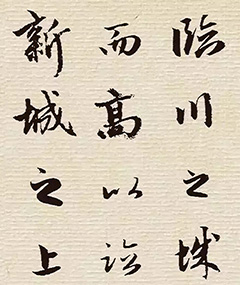 臨川之城
而高以臨
新城之上